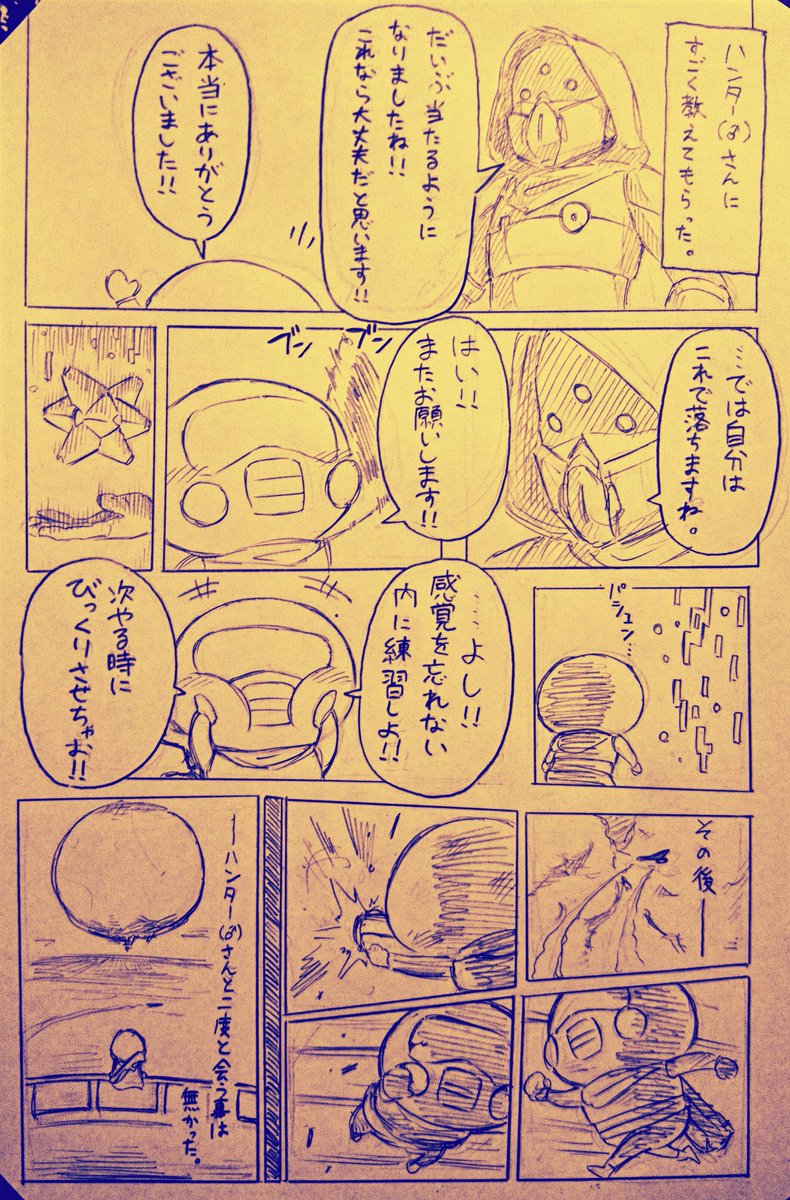 ハンター(♂)さんに
すごく教えてもらった。
だいぶ当たるように
なりましたね!!
これなら大丈夫だと思います!!
本当にありがとう
ございました!!
…では自分は
これで落ちますね。
はい!!
またお願いします!!
ブン
ブン
パシュン…
……よし!!
感覚を忘れない
内に練習しよ!!
次やる時に
びっくりさせちゃお!!
その後――
―ハンター(♂)さんと二度と会う事は
無かった。